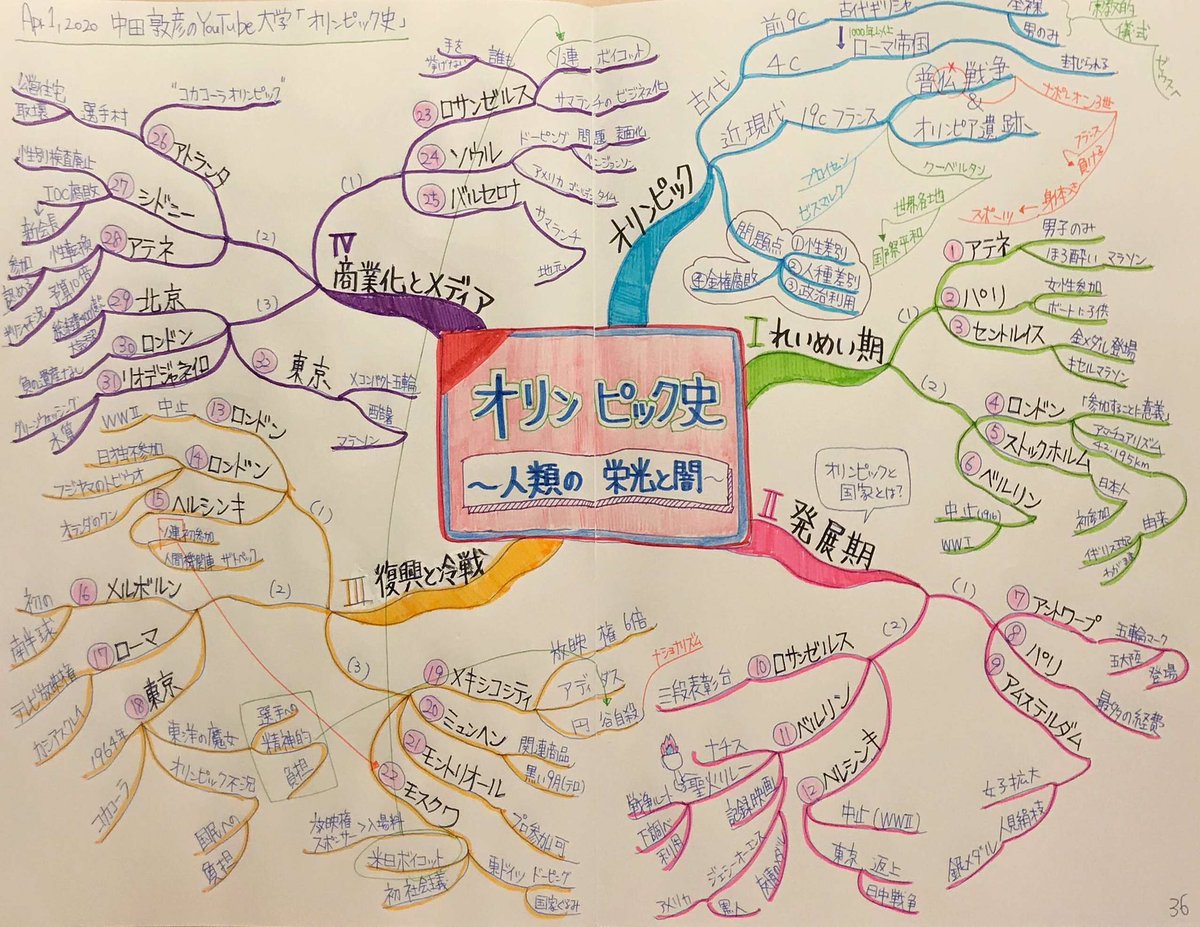 Apr 1, 2020 中田敦彦のYouTube大学「オリンピック史」
オリンピック史
～人類の栄光と闇～
オリンピック
古代
前9C
古代ギリシャ
全裸
男のみ
宗教的
儀式
ゼウス
1000年以上
4C
ローマ帝国
封じられる
近現代
19C フランス
普仏戦争
&
オリンピア遺跡
ナポレオン3世
フランス
負ける
身体
スポーツ
プロイセン
ビスマルク
クーベルタン
世界各地
国際平和
問題点
①性差別
②人種差別
③政治利用
④金権腐敗
I れいめい期
(1)
① アテネ
男子のみ
ほろ酔い マラソン
② パリ
女性参加
ボートに子供
③ セントルイス
金メダル登場
キセルマラソン
(2)
④ ロンドン
「参加することに意義」
アマチュアリズム
42.195km
由来
イギリス王妃
わがまま
⑤ ストックホルム
日本人
初参加
⑥ ベルリン
中止(1916)
WWI
オリンピックと
国家とは?
II 発展期
(1)
⑦ アントワープ
五輪マーク
五大陸
登場
⑧ パリ
最多の経費
⑨ アムステルダム
女子拡大
人見絹枝
銀メダル
(2)
⑩ ロサンゼルス
三段表彰台
ナショナリズム
⑪ ベルリン
ナチス
聖火リレー
戦争ルート
下調べ
利用
記録映画
ジェシーオーエンス
アメリカ
黒人
友情のメダル
⑫ ヘルシンキ
中止(WWII)
東京
返上
日中戦争
III 復興と冷戦
(1)
⑬ ロンドン
WWII
中止
⑭ ロンドン
日独不参加
フジヤマのトビウオ
オランダのクン
⑮ ヘルシンキ
ソ連初参加
人間機関車 ザトペック
(2)
⑯ メルボルン
初の
南半球
⑰ ローマ
テレビ放映権
カシアスクレイ
⑱ 東京
1964年
コカコーラ
東洋の魔女
オリンピック不況
国民への
負担
選手への
精神的
負担
(3)
⑲ メキシコシティ
放映権6倍
アディダス
円谷自殺
⑳ ミュンヘン
関連商品
黒い9月(テロ)
㉑ モントリオール
プロ参加可
㉒ モスクワ
放映権
スポンサー＞入場料
米日ボイコット
初社会主義
東ドイツ ドーピング
国家ぐるみ
IV 商業化とメディア
(1)
㉓ ロサンゼルス
手を
挙げない
誰も
ソ連 ボイコット
サマランチのビジネス化
㉔ ソウル
ドーピング 問題 表面化
ベンジョンソン
アメリカ ゴールデンタイム
㉕ バルセロナ
サマランチ
地元
(2)
㉖ アトランタ
"コカコーラオリンピック"
選手村
公営住宅
取壊
㉗ シドニー
性別検査廃止
IOC腐敗
新会長
㉘ アテネ
性転換
参加
認める
予算10倍
ギリシャ不況
(3)
㉙ 北京
㉚ ロンドン
負の遺産なし
㉛ リオデジャネイロ
グリーンウォッシング
㉜ 東京
×コンパクト五輪
酷暑
マラソン
36